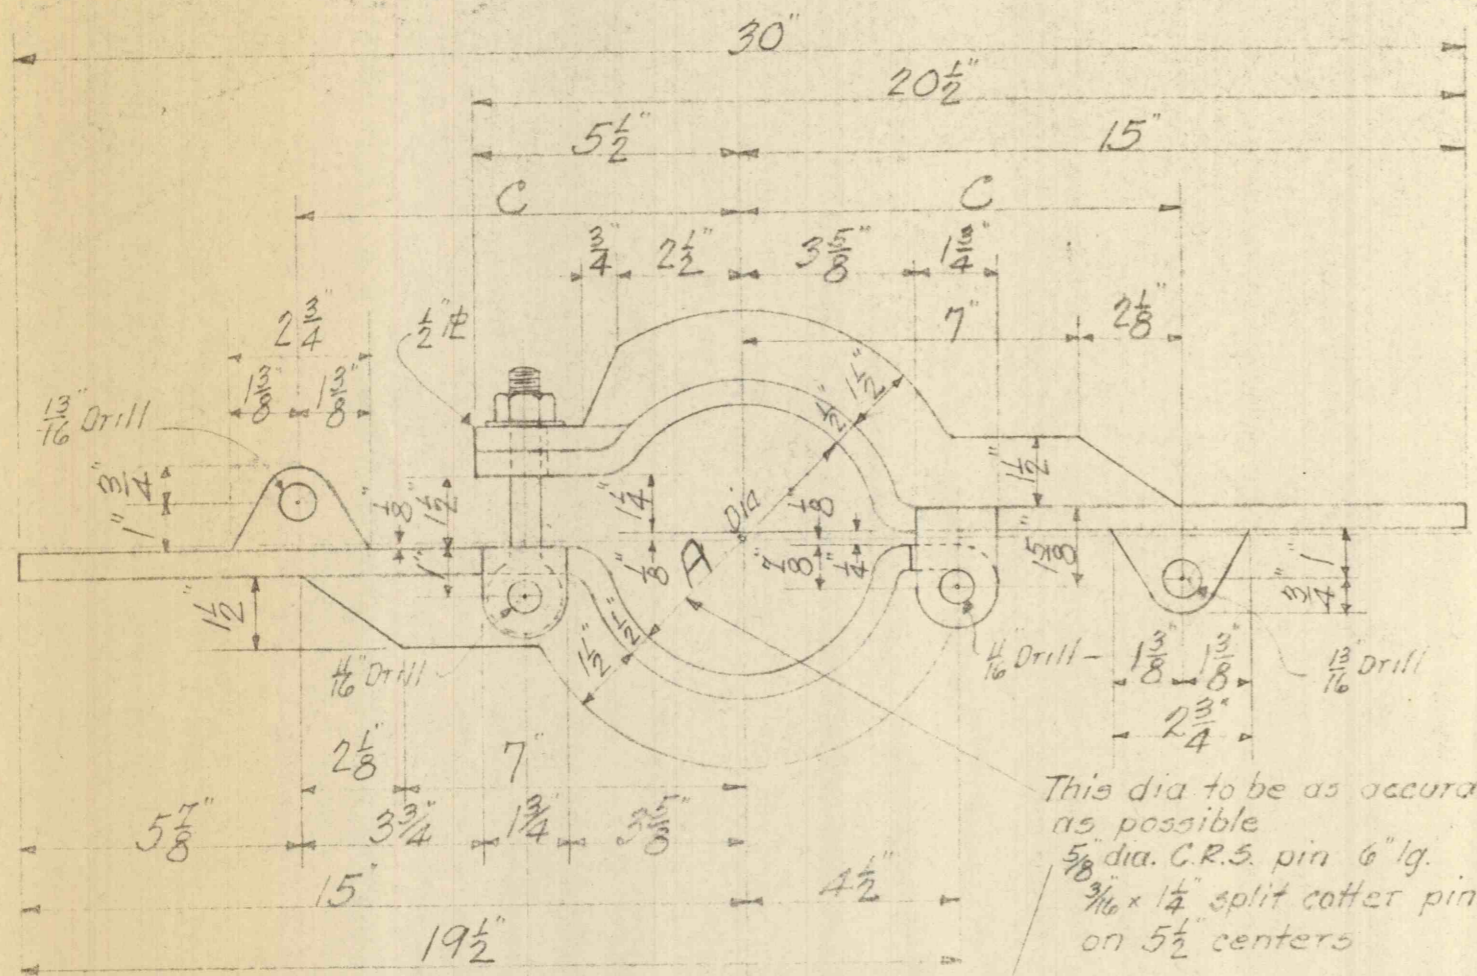 30"
20½"
5½" 15"
C C
¾" 2½" 3⅝" 1¾"
2¾" ½" ℄ 7" 2⅛"
1⅜" 1⅜"
13/16" Drill
½" 1½"
¾" 1½"
1" ⅛" 1½" 1¼" Dia ⅛"
1" ⅛" D ⅞" ¼" 1⅝" 1"
¾"
1½" ½"
1½"
11/16" Drill 11/16" Drill 1⅜" 1⅜" 13/16" Drill
2¾"
2⅛" 7"
5⅞" 3¾" 1¾" 3⅝"
15" 4½"
19½"
This dia to be as
as possible
⅝" dia. C.R.S. pin 6" lg.
3/16" x 1¼" split cotter pin
on 5½" centers